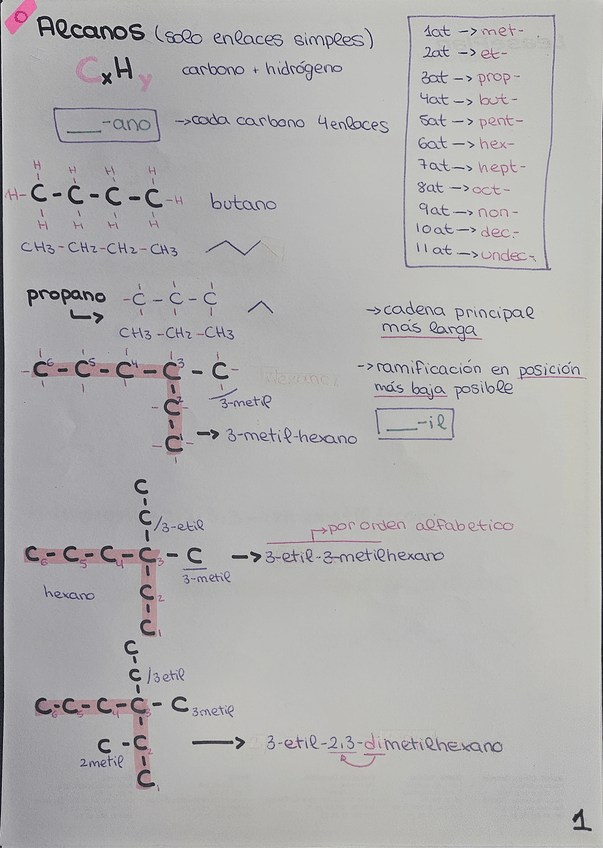 Alcanos (solo enlaces simples)
CxHy carbono + hidrógeno
___-ano → cada carbono 4 enlaces
1at → met-
2at → et-
3at → prop-
4at → but-
5at → pent-
6at → hex-
7at → hept-
8at → oct-
9at → non-
10at → dec-
11at → undec-
H H H H
H-C-C-C-C-H butano
H H H H
CH3-CH2-CH2-CH3
propano ↳ -C-C-C-
CH3-CH2-CH3
→ cadena principal
más larga
→ ramificación en posición
más baja posible
___-il
-C6-C5-C4-C3-C-
3-metil
-C2-
-C1- → 3-metil-hexano
C
C/3-etil
por orden alfabetico
C6-C5-C4-C3-C → 3-etil-3-metilhexano
3-metil
hexano
C2
C1
C
C/3etil
C6-C5-C4-C3-C 3metil
C-C2 → 3-etil-2,3-dimetilhexano
2metil
C1
1